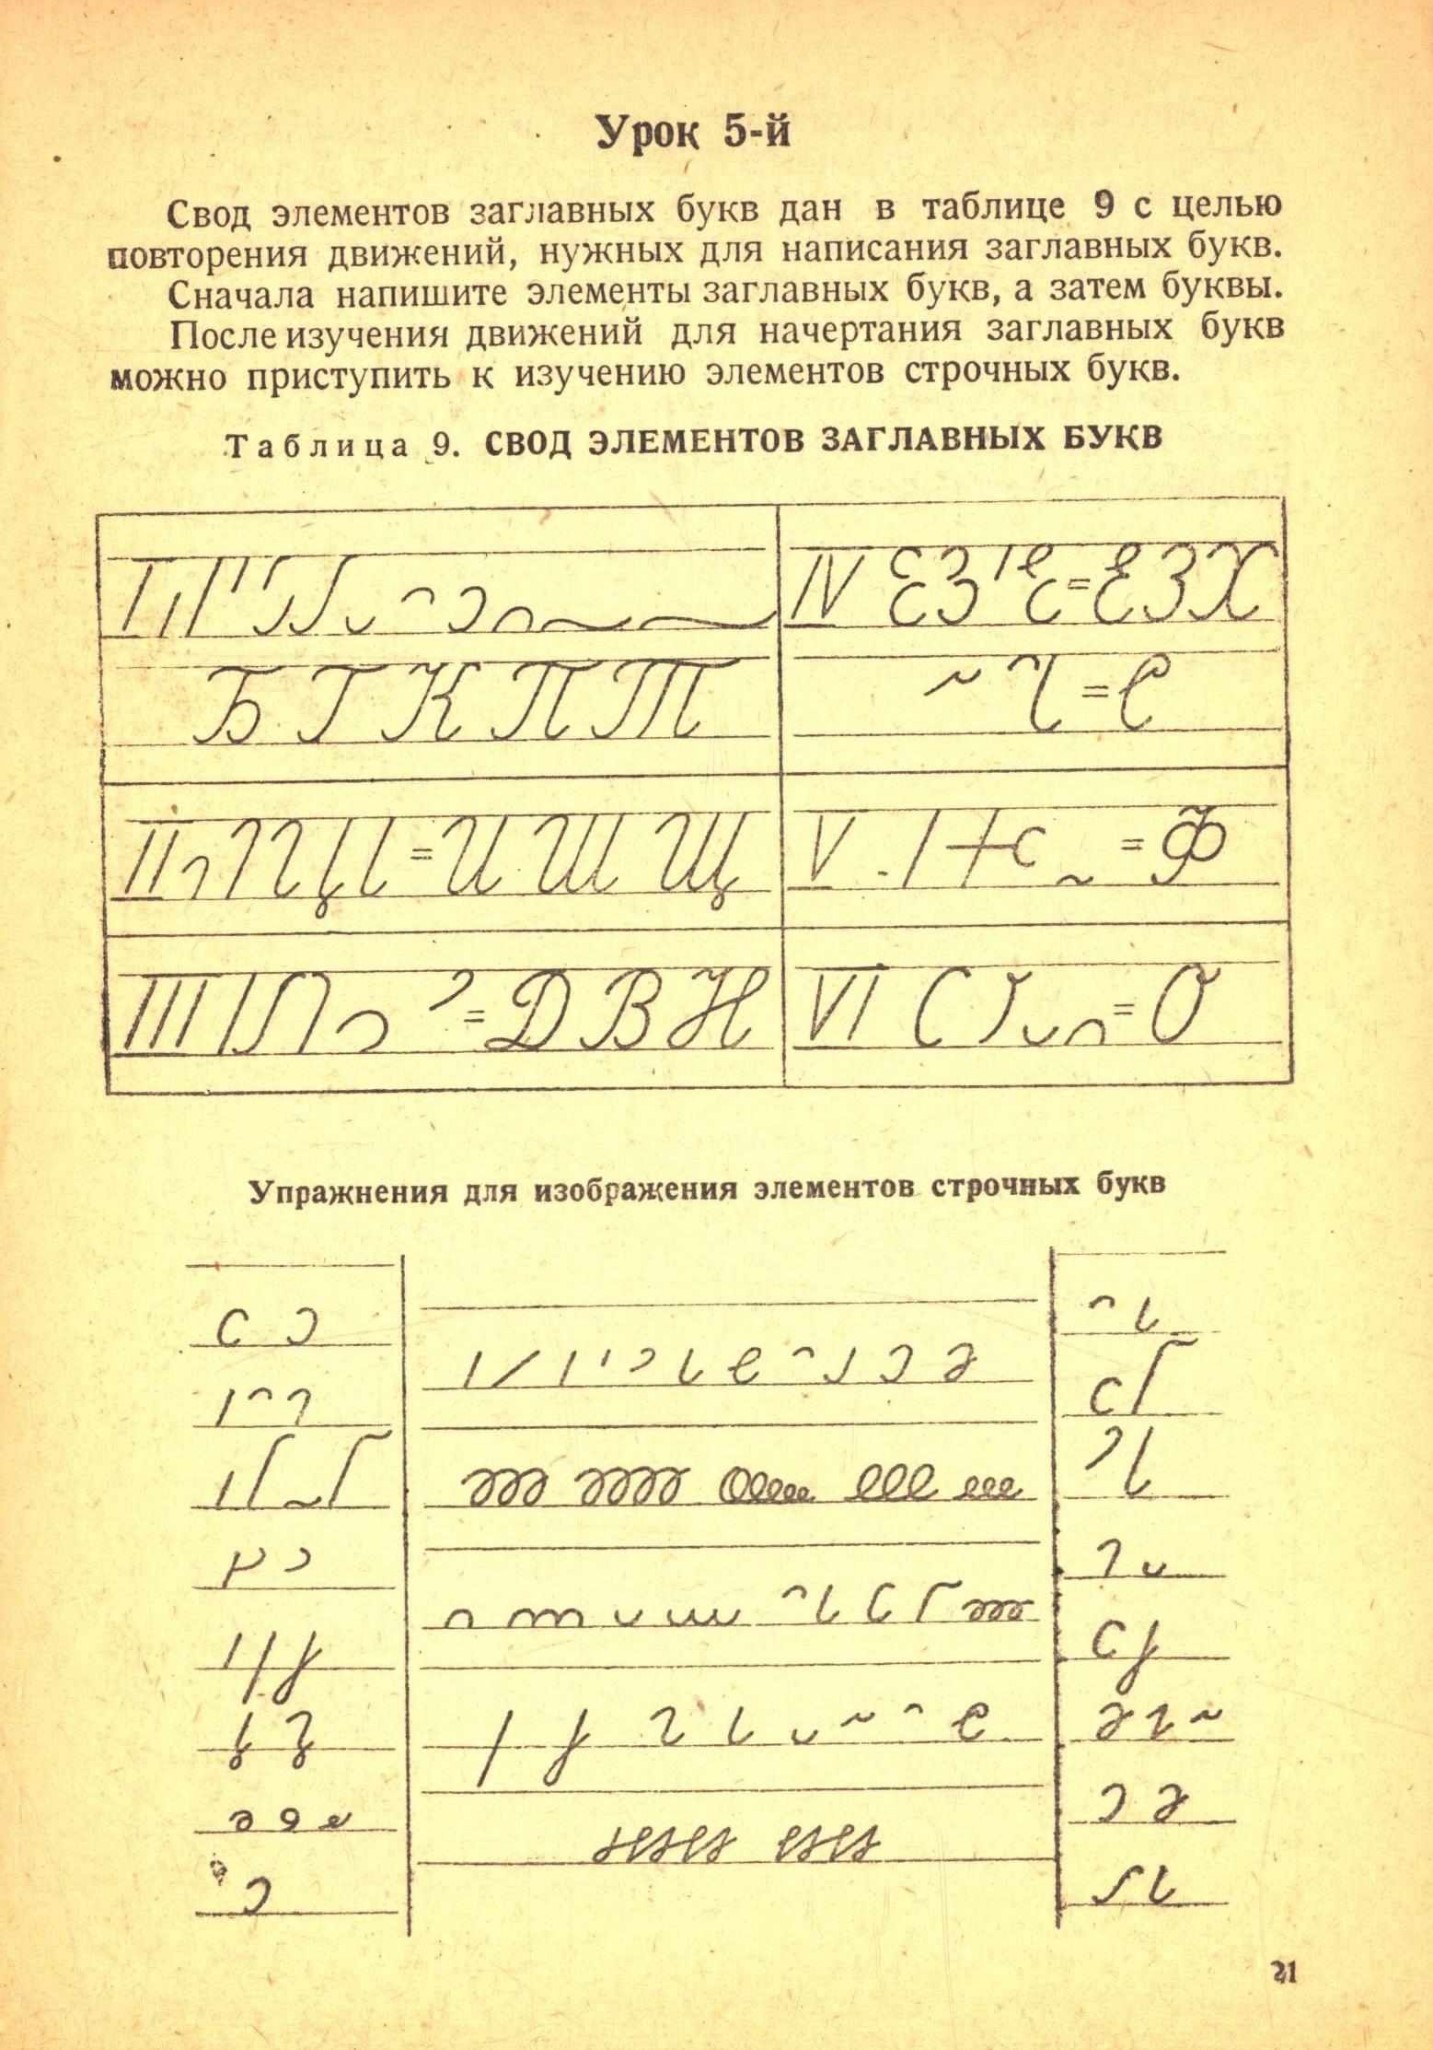 Урок 5-й
Свод элементов заглавных букв дан в таблице 9 с целью
повторения движений, нужных для написания заглавных букв.
Сначала напишите элементы заглавных букв, а затем буквы.
После изучения движений для начертания заглавных букв
можно приступить к изучению элементов строчных букв.
Таблица 9. СВОД ЭЛЕМЕНТОВ ЗАГЛАВНЫХ БУКВ
I
Б Г К П Т
II = И Ш Щ
III = Д В Н
IV = Е З Х
= С
V = Ф
VI = О
Упражнения для изображения элементов строчных букв
21